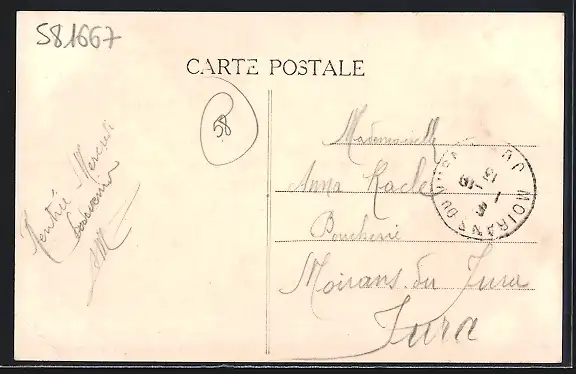 581667
CARTE POSTALE
58
Rentrée Mercredi
Souvenir
Mademoiselle
Anna Racle
Boucherie
Moirans du Jura
Jura
MOIRANS DU JURA